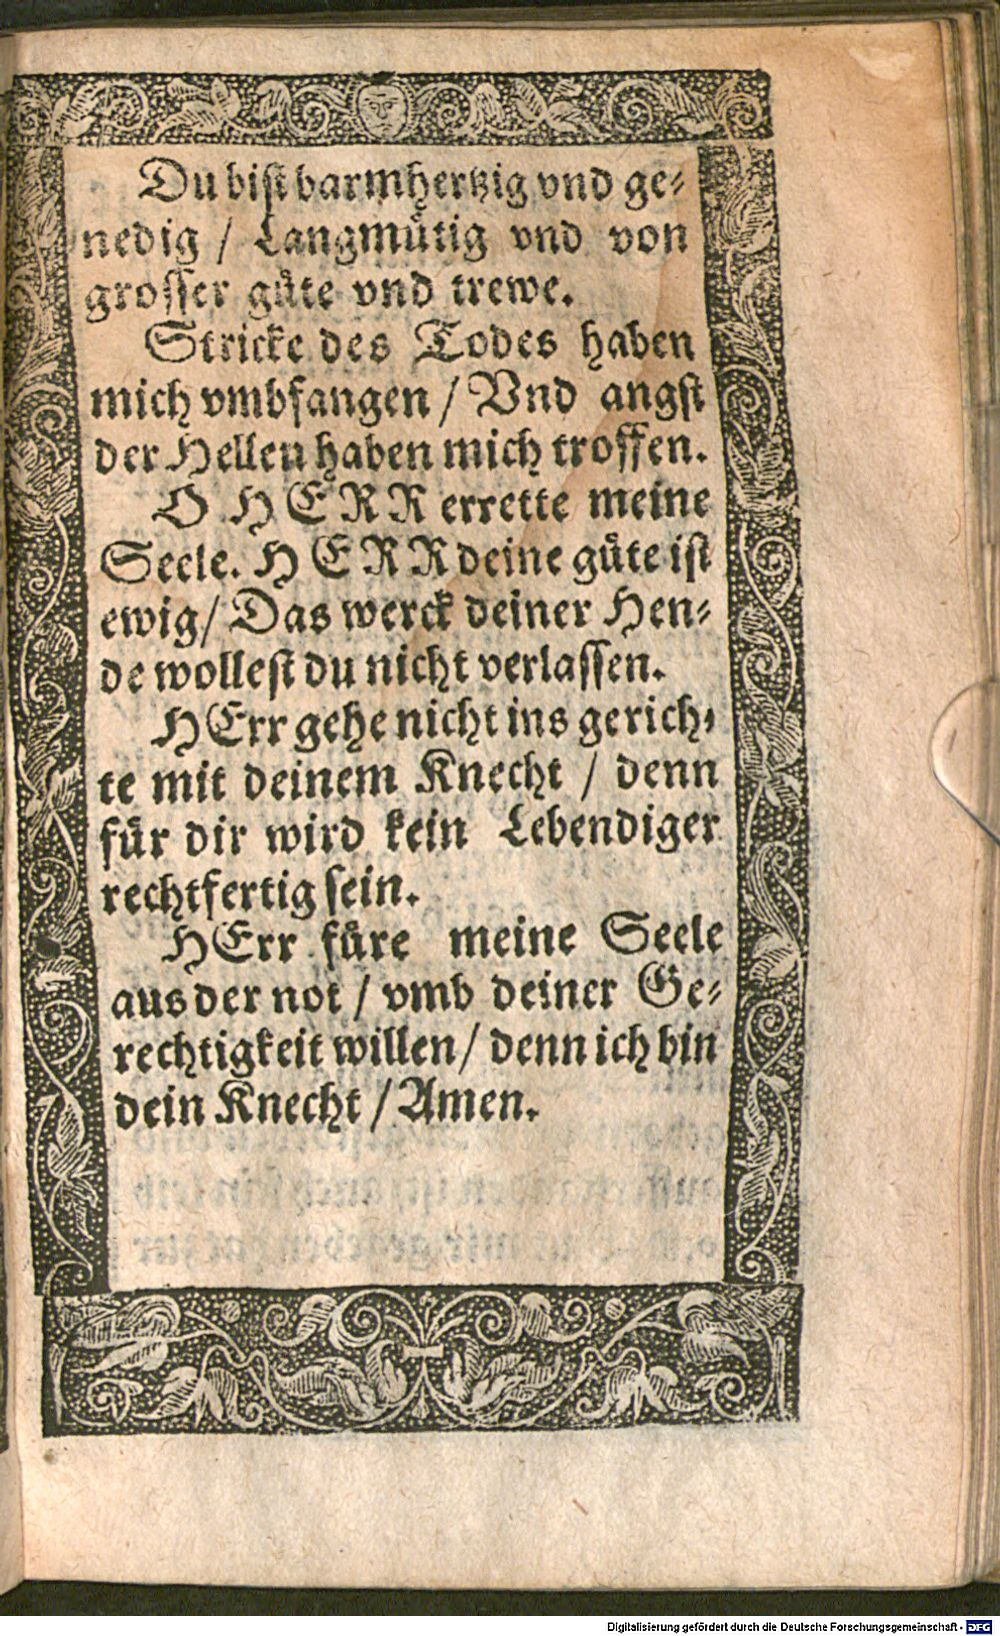 Du bist barmhertzig vnd ge-
nedig / Langmütig vnd von
grosser güte vnd trewe.
Stricke des Todes haben
mich vmbfangen / Vnd angst
der Hellen haben mich troffen.
O HERR errette meine
Seele. HERR deine güte ist
ewig / Das werck deiner Hen-
de wollest du nicht verlassen.
HErr gehe nicht ins gerich-
te mit deinem Knecht / denn
für dir wird kein Lebendiger
rechtfertig sein.
HErr füre meine Seele
aus der not / vmb deiner Ge-
rechtigkeit willen / denn ich bin
dein Knecht / Amen.
Digitalisierung gefördert durch die Deutsche Forschungsgemeinschaft - DFG